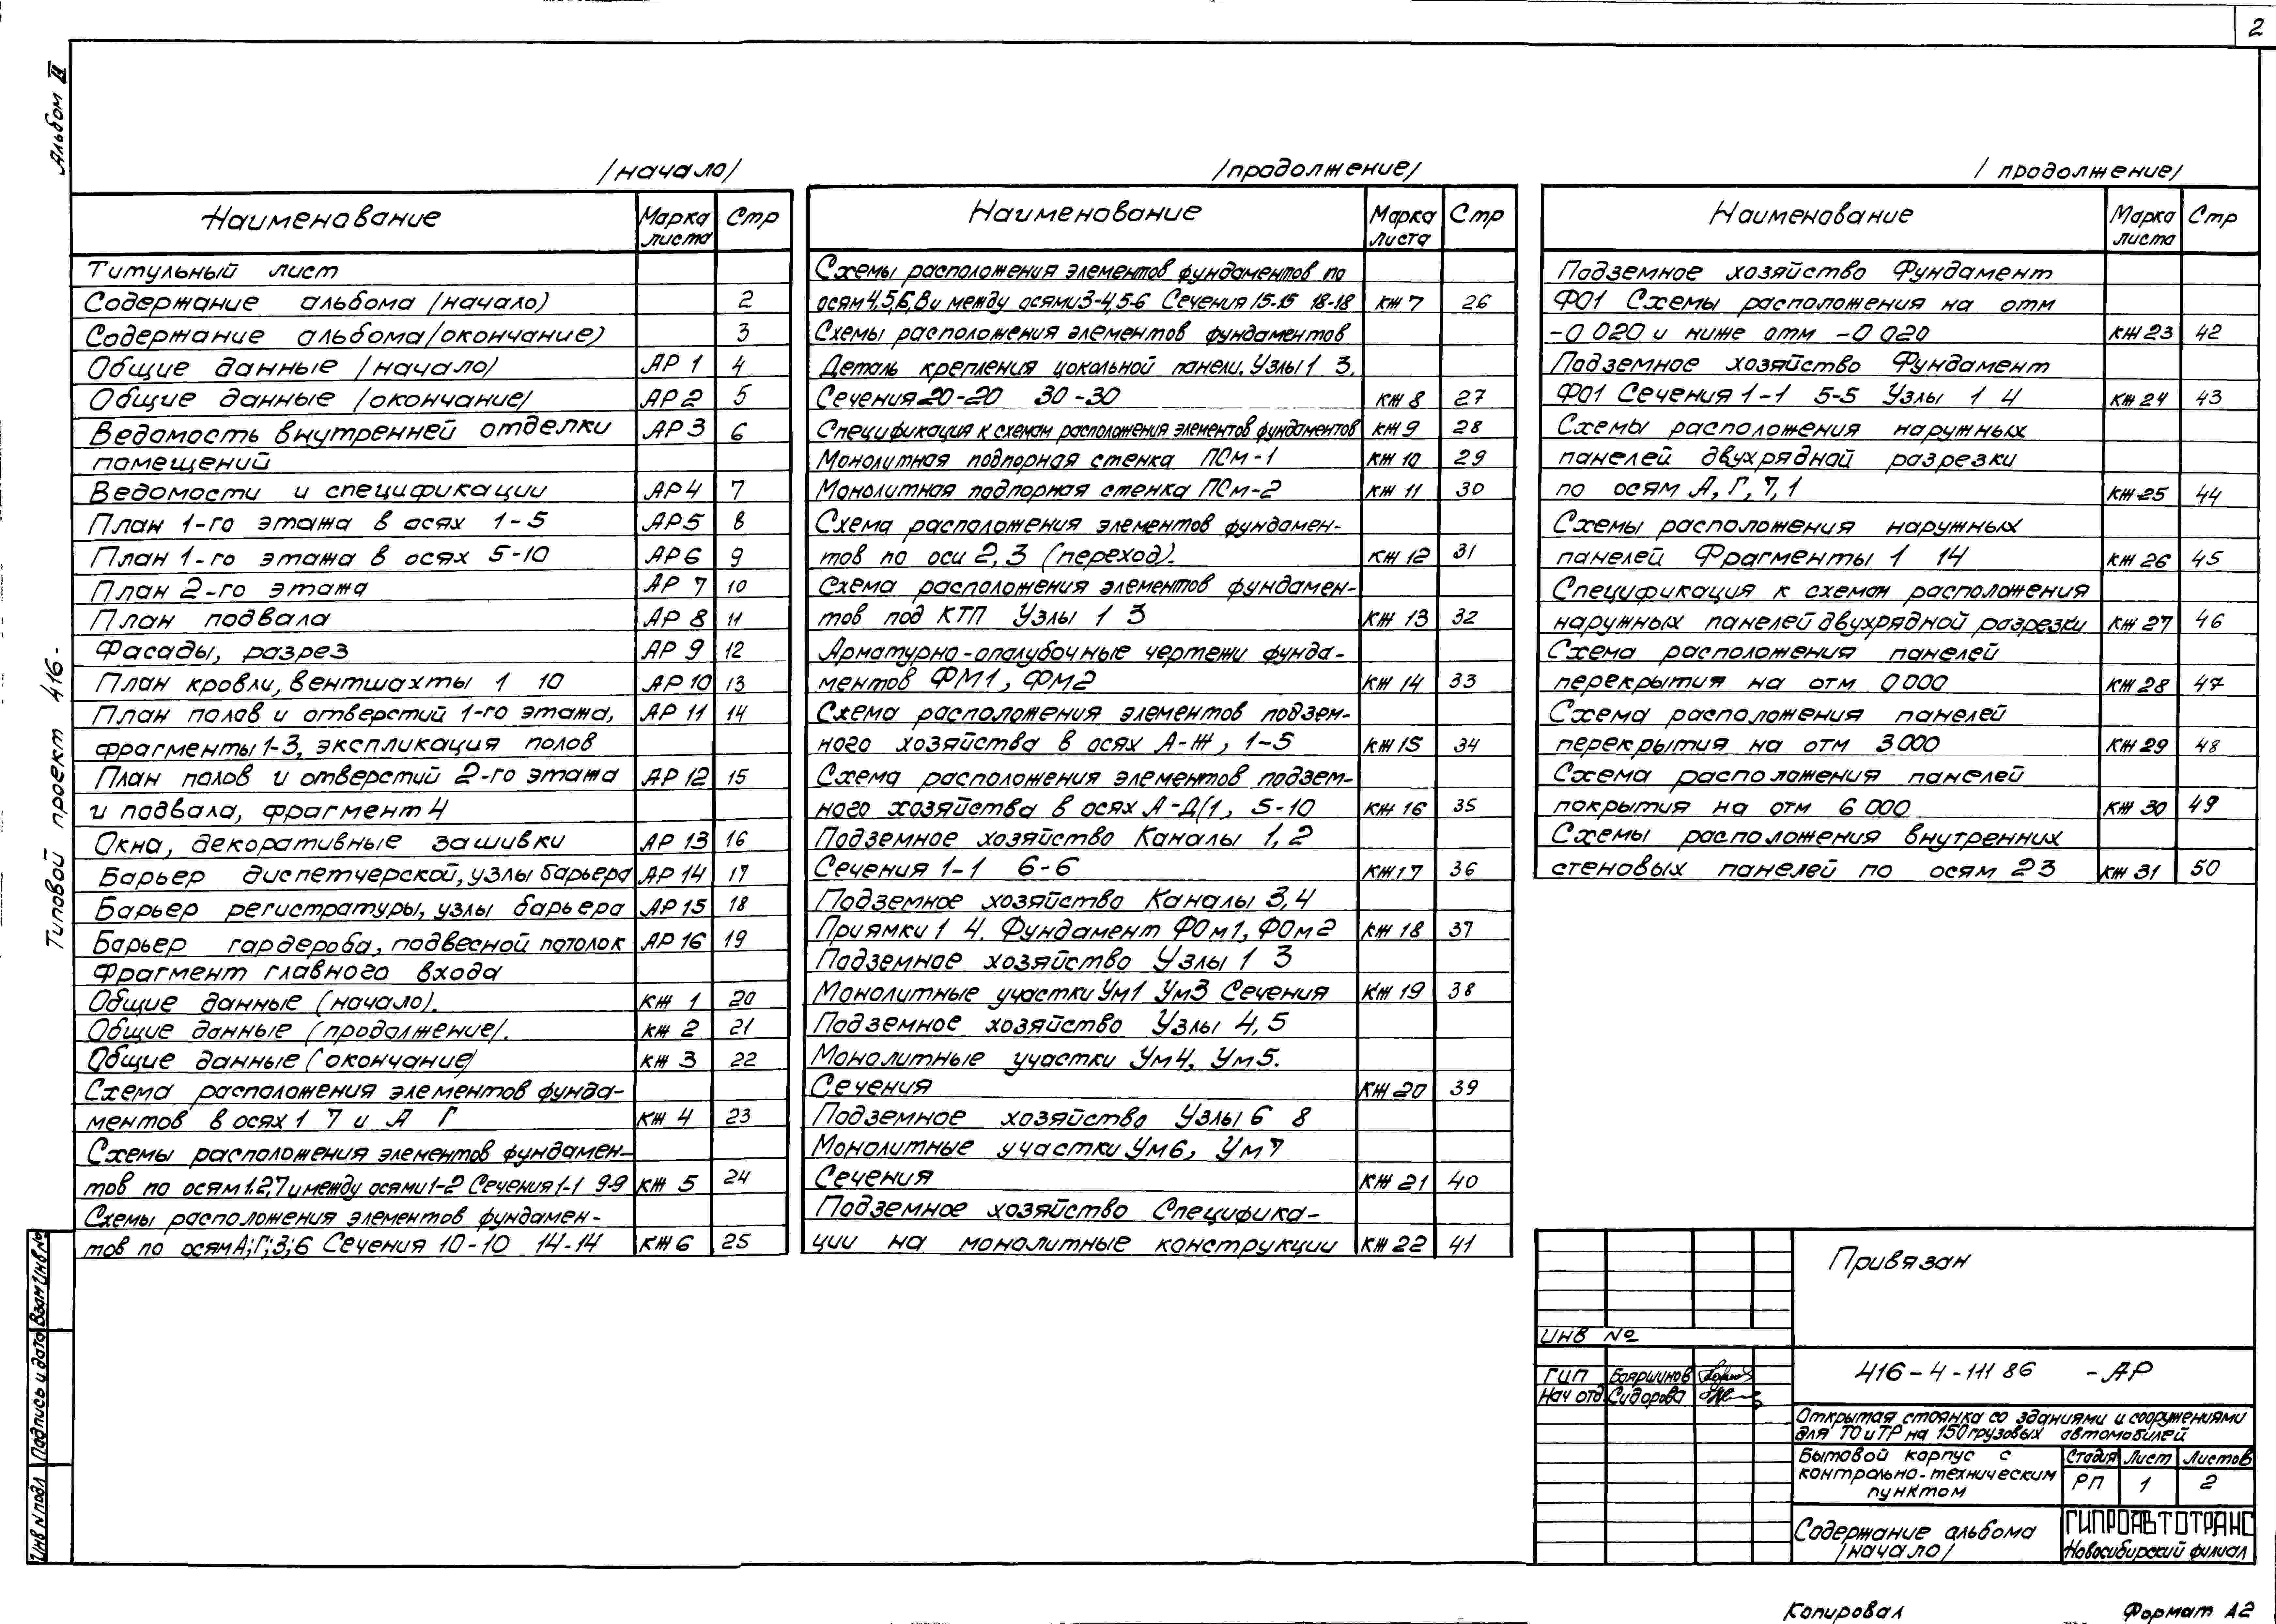 2
Альбом II
Типовой проект 416-
/начало/
Наименование Марка листа Стр
Титульный лист
Содержание альбома /начало) 2
Содержание альбома /окончание) 3
Общие данные /начало/ АР 1 4
Общие данные /окончание/ АР 2 5
Ведомость внутренней отделки АР 3 6
помещений
Ведомости и спецификации АР4 7
План 1-го этажа в осях 1-5 АР5 8
План 1-го этажа в осях 5-10 АР6 9
План 2-го этажа АР 7 10
План подвала АР 8 11
Фасады, разрез АР 9 12
План кровли, вентшахты 1 10 АР 10 13
План полов и отверстий 1-го этажа, АР 11 14
фрагменты 1-3, экспликация полов
План полов и отверстий 2-го этажа АР 12 15
и подвала, фрагмент 4
Окна, декоративные зашивки АР 13 16
Барьер диспетчерской, узлы барьера АР 14 17
Барьер регистратуры, узлы барьера АР 15 18
Барьер гардероба, подвесной потолок АР 16 19
Фрагмент главного входа
Общие данные (начало). КЖ 1 20
Общие данные (продолжение/. КЖ 2 21
Общие данные (окончание) КЖ 3 22
Схема расположения элементов фунда-
ментов в осях 1 7 и А Г КЖ 4 23
Схемы расположения элементов фундамен-
тов по осям 1.2,7 и между осями 1-2 Сечения 1-1 9-9 КЖ 5 24
Схемы расположения элементов фундамен-
тов по осям А;Г;3;6 Сечения 10-10 14-14 КЖ 6 25
/продолжение/
Наименование Марка Листа Стр
Схемы расположения элементов фундаментов по
осям 4,5,6,В и между осями 3-4,5-6 Сечения 15-15 18-18 КЖ 7 26
Схемы расположения элементов фундаментов
Деталь крепления цокольной панели. Узлы 1 3.
Сечения 20-20 30-30 КЖ 8 27
Спецификация к схемам расположения элементов фундаментов КЖ 9 28
Монолитная подпорная стенка ПСм-1 КЖ 10 29
Монолитная подпорная стенка ПСм-2 КЖ 11 30
Схема расположения элементов фундамен-
тов по оси 2,3 (переход). КЖ 12 31
Схема расположения элементов фундамен-
тов под КТП Узлы 1 3 КЖ 13 32
Арматурно-опалубочные чертежи фунда-
ментов ФМ1, ФМ2 КЖ 14 33
Схема расположения элементов подзем-
ного хозяйства в осях А-Ж, 1-5 КЖ15 34
Схема расположения элементов подзем-
ного хозяйства в осях А-Д/1, 5-10 КЖ 16 35
Подземное хозяйство Каналы 1,2
Сечения 1-1 6-6 КЖ17 36
Подземное хозяйство Каналы 3,4
Приямки 1 4. Фундамент ФОм1, ФОм2 КЖ 18 37
Подземное хозяйство Узлы 1 3
Монолитные участки Ум1 Ум3 Сечения КЖ 19 38
Подземное хозяйство Узлы 4,5
Монолитные участки Ум4, Ум5.
Сечения КЖ 20 39
Подземное хозяйство Узлы 6 8
Монолитные участки Ум6, Ум7
Сечения КЖ 21 40
Подземное хозяйство Специфика-
ции на монолитные конструкции КЖ 22 41
/ продолжение/
Наименование Марка листа Стр
Подземное хозяйство Фундамент
Ф01 Схемы расположения на отм
-0 020 и ниже отм -0 020 КЖ 23 42
Подземное хозяйство Фундамент
Ф01 Сечения 1-1 5-5 Узлы 1 4 КЖ 24 43
Схемы расположения наружных
панелей двухрядной разрезки
по осям А, Г, 7, 1 КЖ 25 44
Схемы расположения наружных
панелей Фрагменты 1 14 КЖ 26 45
Спецификация к схемам расположения
наружных панелей двухрядной разрезки КЖ 27 46
Схема расположения панелей
перекрытия на отм 0 000 КЖ 28 47
Схема расположения панелей
перекрытия на отм 3 000 КЖ 29 48
Схема расположения панелей
покрытия на отм 6 000 КЖ 30 49
Схемы расположения внутренних
стеновых панелей по осям 2 3 КЖ 31 50
Привязан
ИНВ №
ГИП Бояршинов
Нач отд Сидорова
416-4-111 86 -АР
Открытая стоянка со зданиями и сооружениями
для ТО и ТР на 150 грузовых автомобилей
Бытовой корпус с
контрольно-техническим
пунктом
Стадия Лист Листов
РП 1 2
Содержание альбома
/начало/
ГИПРОАВТОТРАНС
Новосибирский филиал
Инв N подл Подпись и дата Взам Инв №
Копировал Формат А2